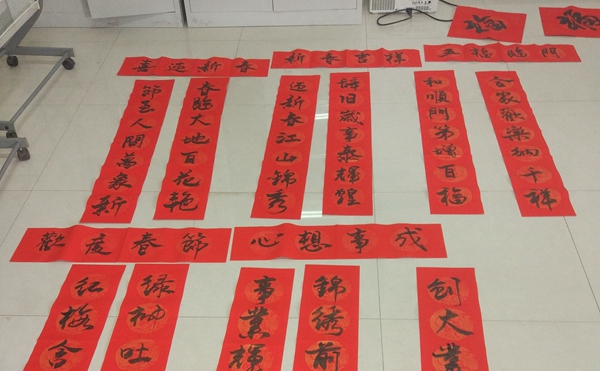 福
福
喜迎新春
新春吉祥
五福臨門
春臨大地百花艳
節至人間萬象新
辞旧歲事泰輝煌
迎新春江山錦秀
合家歡樂納千祥
和順門第增百福
歡度春節
心想事成
红梅含
绿柳吐
事業輝
錦綉前
創大業